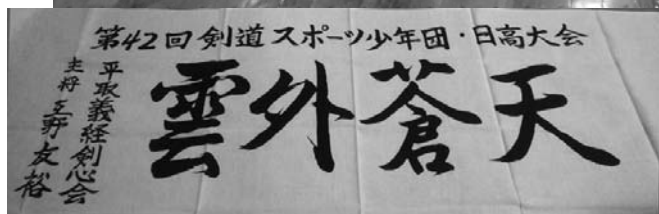 第42回剣道スポーツ少年団・日高大会
雲外蒼天
平取義経剣心会
主将 野友裕